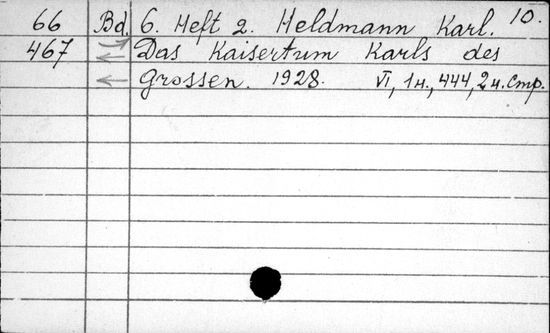 66 Bd. 6. Heft 2. Heldmann Karl. 10.
467 Das Kaisertum Karls des
Grossen. 1928. VI, 1 н., 444, 2 н. стр.